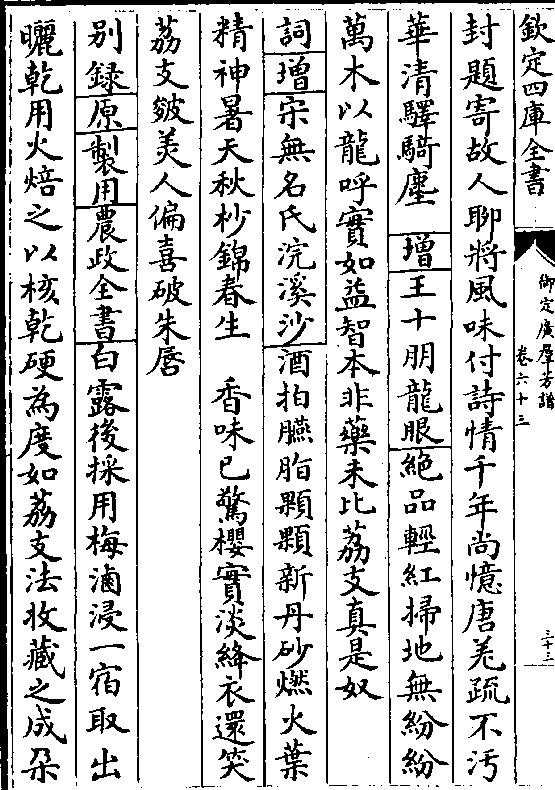 欽定四庫全書
御定廣羣芳譜
卷六十三
三十三
封題寄故人聊將風味付詩情千年尚憶唐羌疏不汚
華清驛騎塵 增王十朋龍眼絶品輕紅掃地無紛紛
萬木以龍呼實如益智本非藥未比荔支真是奴
詞增宋無名氏浣溪沙酒拍臙脂顆顆新丹砂燃火葉
精神暑天秋杪錦春生 香味已驚櫻實淡絳衣還笑
荔支皴美人偏喜破朱唇
别録原製用農政全書白露後採用梅滷浸一宿取出
曬乾用火焙之以核乾硬為度如荔支法收藏之成朶